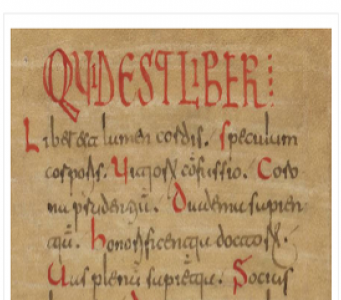 QUID EST LIBER
Liber est lumen cordis. Speculum
corporis. Uitiorum cōfussio. Coro
na prudentiū. Diademe sapien
tiū. honorificentia doctorum.
Uas plenū sapientia. Socius